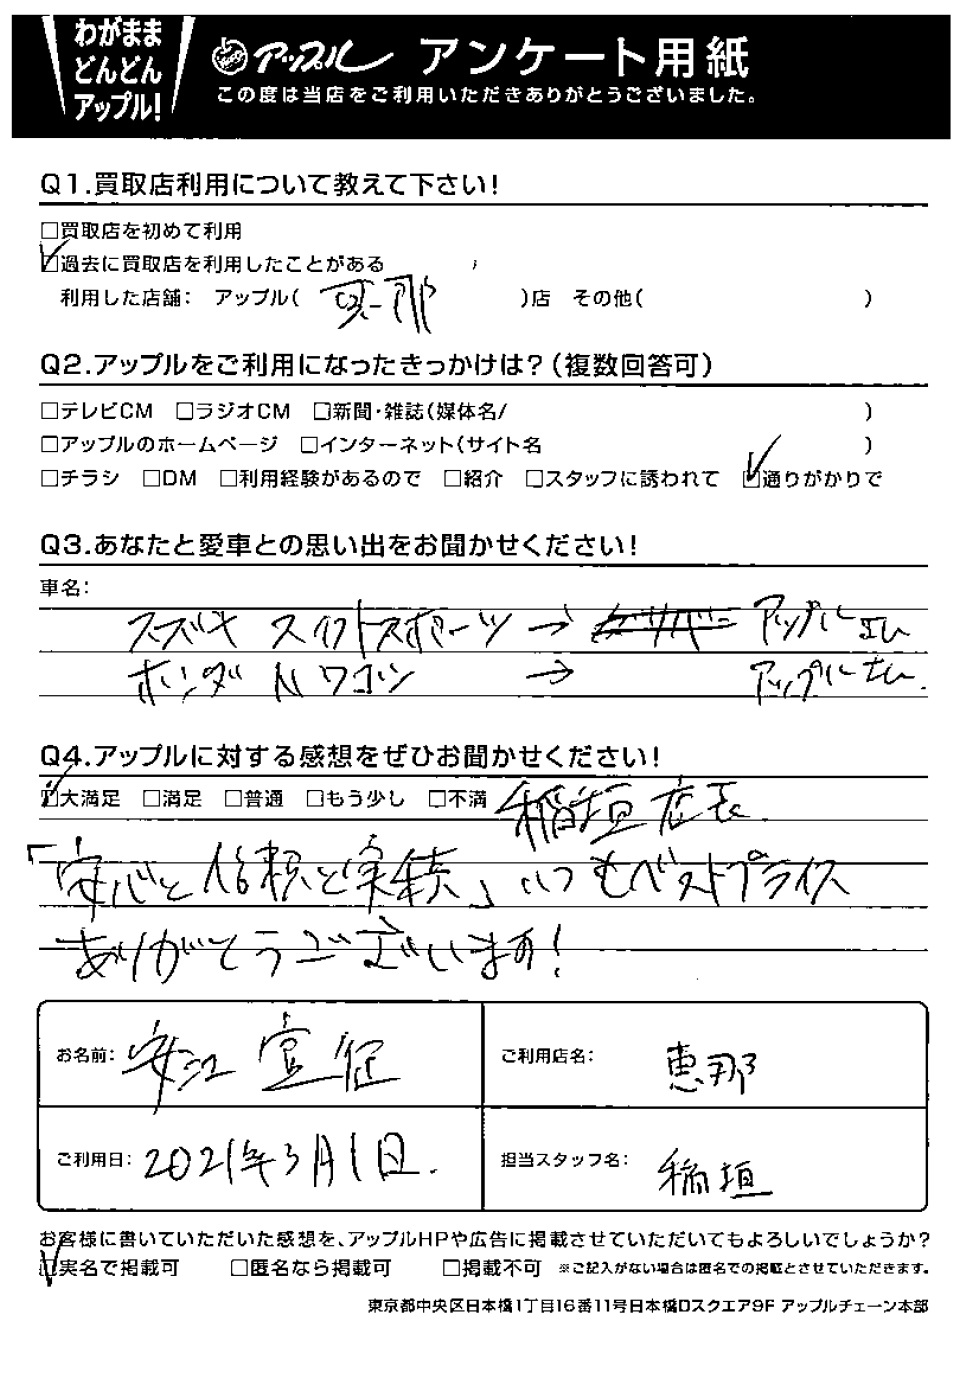 わがまま
どんどん
アップル!
アップル アンケート用紙
この度は当店をご利用いただきありがとうございました。
Q1.買取店利用について教えて下さい!
□買取店を初めて利用
☑過去に買取店を利用したことがある
利用した店舗: アップル( 恵那 )店 その他( )
Q2.アップルをご利用になったきっかけは?(複数回答可)
□テレビCM □ラジオCM □新聞・雑誌(媒体名/ )
□アップルのホームページ □インターネット(サイト名 )
□チラシ □DM □利用経験があるので □紹介 □スタッフに誘われて ☑通りがかりで
Q3.あなたと愛車との思い出をお聞かせください!
車名:
スズキ スイフトスポーツ → アップルさん
ホンダ Nワゴン → アップルさん.
Q4.アップルに対する感想をぜひお聞かせください!
☑大満足 □満足 □普通 □もう少し □不満 稲垣店長
「安心と信頼と実績」いつもベストプライス
ありがとうございます!
お名前: 安江 宣
ご利用店名: 恵那
ご利用日: 2021年3月1日.
担当スタッフ名: 稲垣
お客様に書いていただいた感想を、アップルHPや広告に掲載させていただいてもよろしいでしょうか?
☑実名で掲載可 □匿名なら掲載可 □掲載不可 ※ご記入がない場合は匿名での掲載とさせていただきます。
東京都中央区日本橋1丁目16番11号日本橋Dスクエア9F アップルチェーン本部